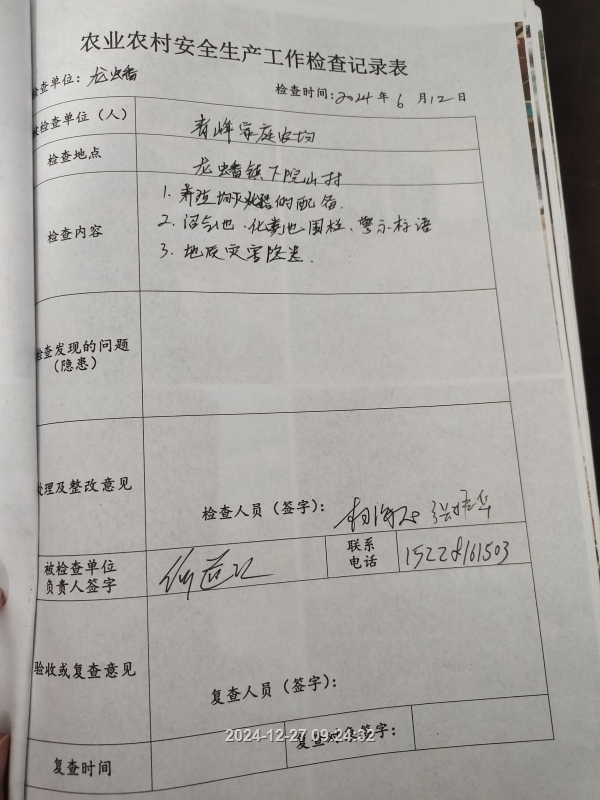 农业农村安全生产工作检查记录表
检查单位：龙虫
检查时间：2024年6月12日
被检查单位（人）
青峰家庭农场
检查地点
龙 镇下院山村
检查内容
1. 养殖场灭火器的配备.
2. 沼气池、化粪池围栏、警示标语
3. 地质灾害隐患.
检查发现的问题
（隐患）
处理及整改意见
检查人员（签字）：
被检查单位
负责人签字
联系
电话
15228161503
验收或复查意见
复查人员（签字）：
复查时间
复查对象签字：
2024-12-27 09:24:32